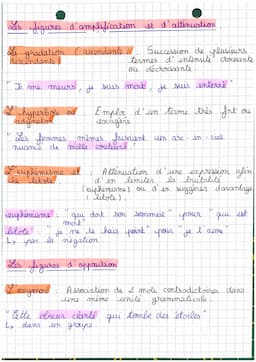 Les figures d'amplification et d'atténuation
La gradation (ascendante / : Succession de plusieurs
descendante) termes d'intensité croissante
ou décroissante.
"Je me meurs, je suis mort, je suis enterré"
L'hyperbole ou : Emploi d'un terme très fort ou
exagéré
"Les femmes mêmes faisaient un arc-en-ciel
nuancé de mille couleurs"
L'euphémisme et : Atténuation d'une expression afin
la litote d'en limiter la brutalité
(euphémisme) ou d'en suggérer davantage
(litote).
euphémisme : qui dort son sommeil" pour "qui est
mort"
litote : "je ne te hais point" pour "je t'aime"
↳ par la négation.
Les figures d'opposition
L'oxymore : Association de 2 mots contradictoires dans
une même unité grammaticale.
"Cette obscure clarté qui tombe des étoiles"
↳ dans un groupe